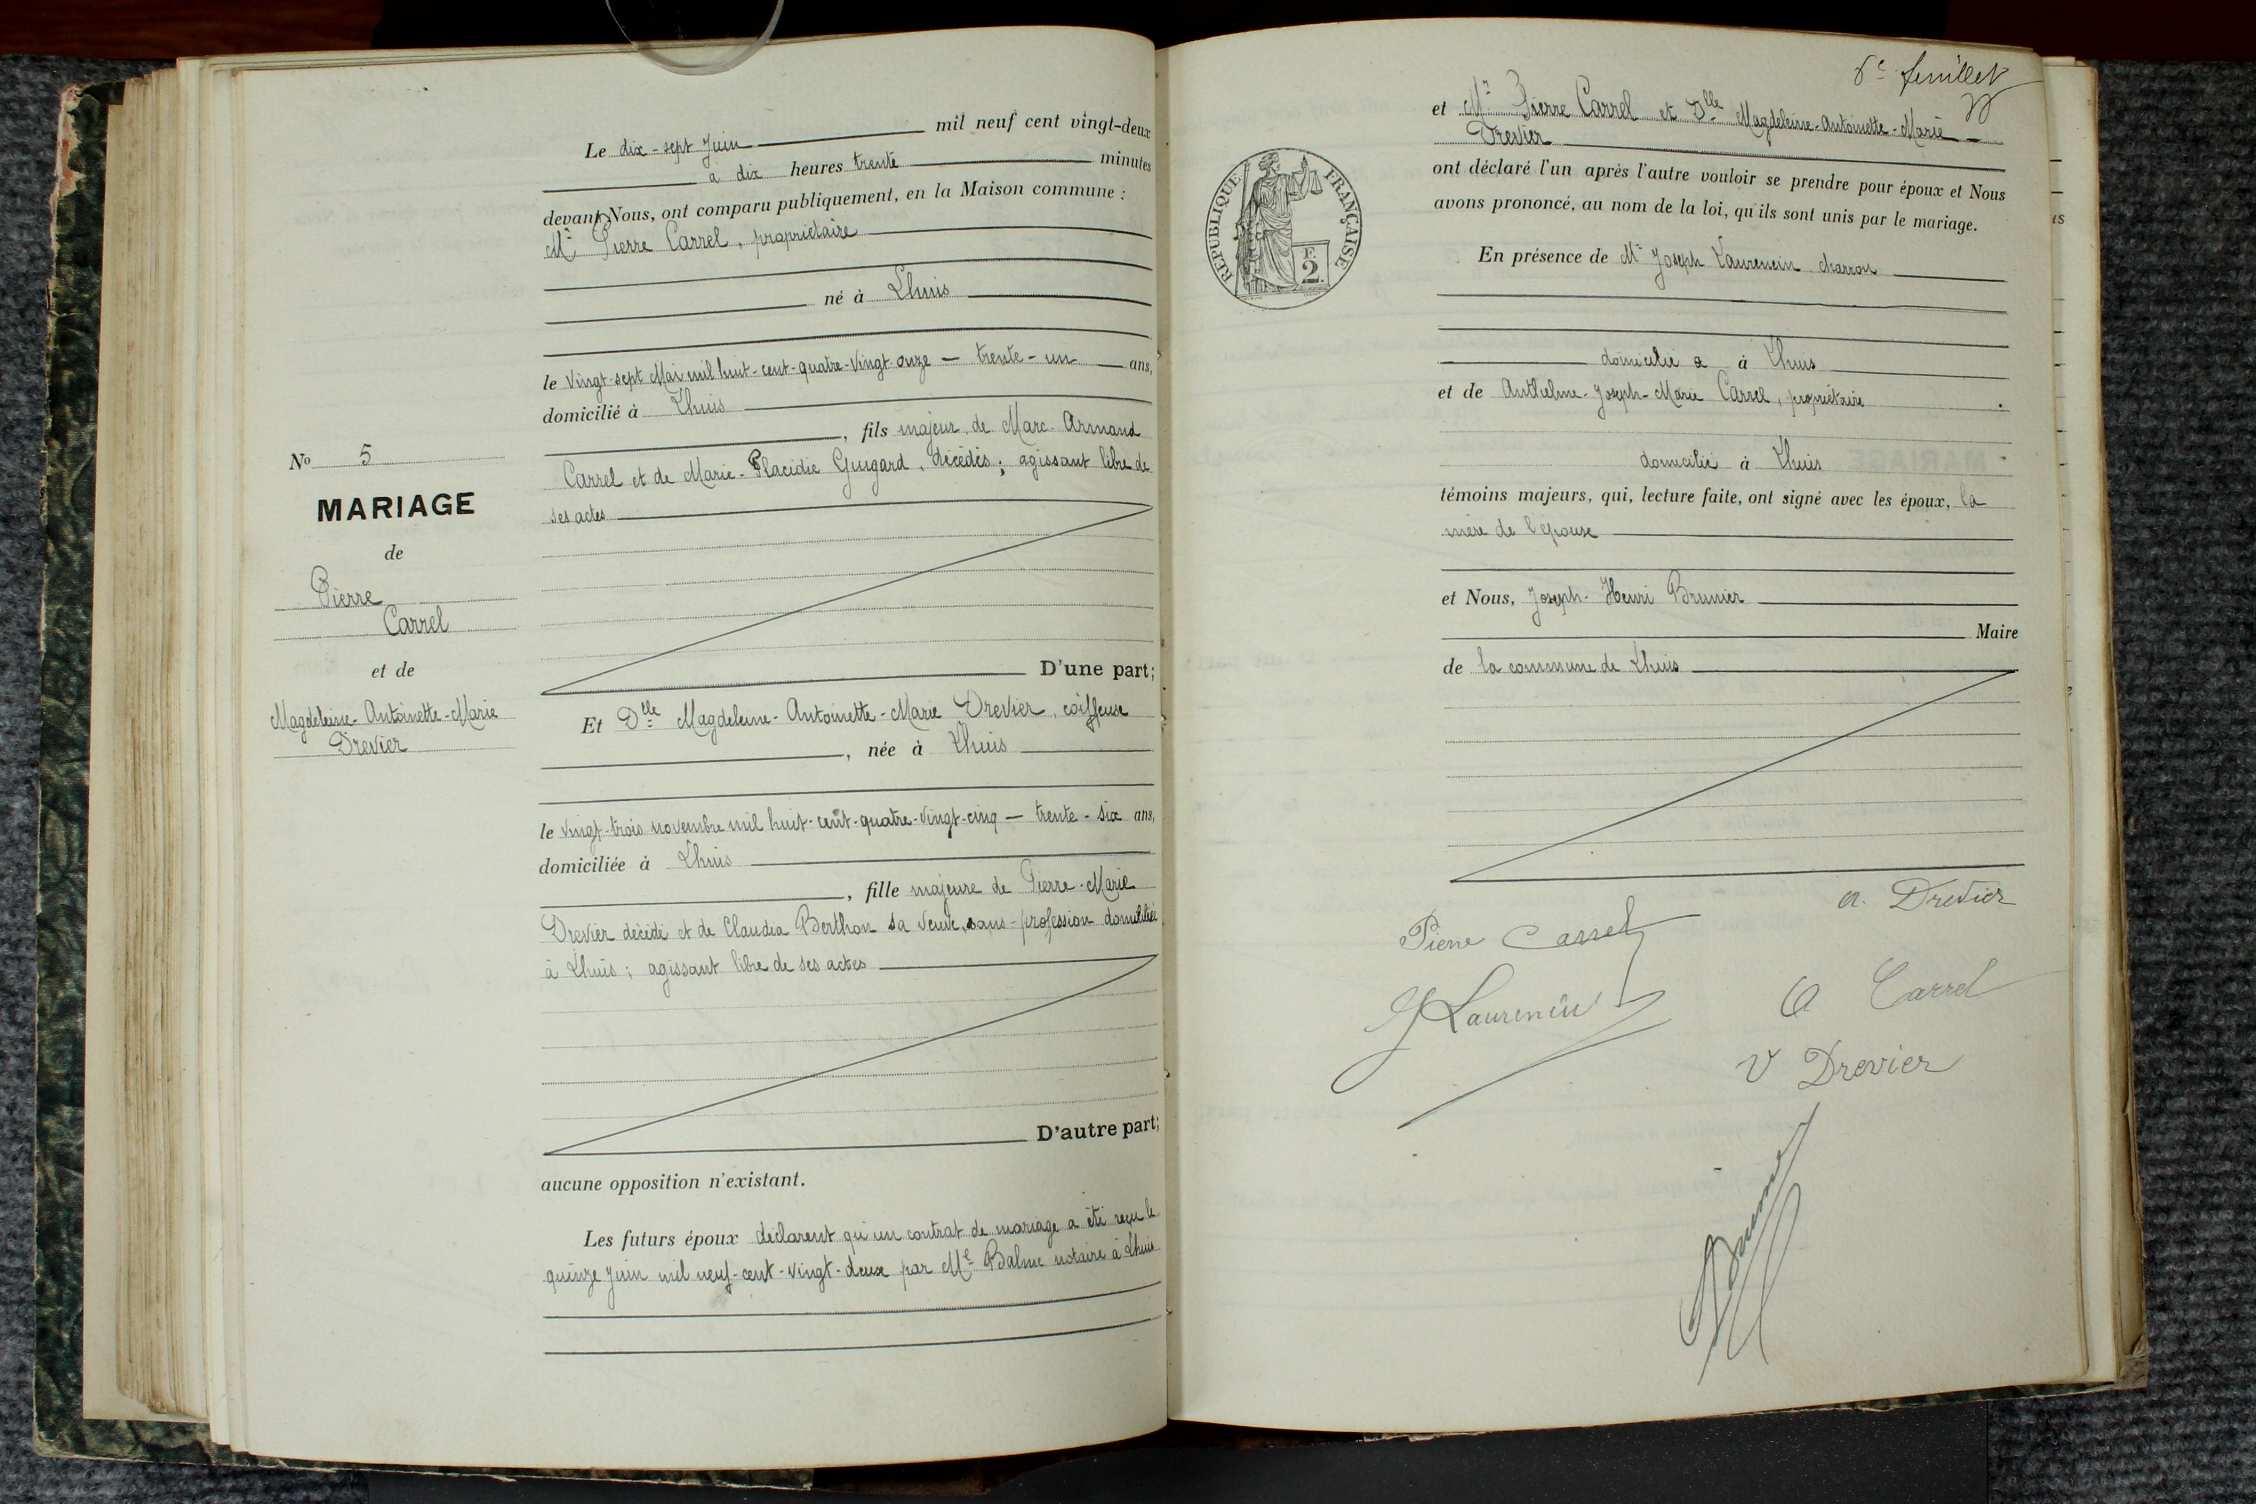 Le dix-sept Juin mil neuf cent vingt-deux
à dix heures trente minutes
devant Nous, ont comparu publiquement, en la Maison commune :
Mr Pierre Carrel, propriétaire
né à Lhuis
le Vingt-sept Mai mil huit-cent-quatre-Vingt onze — trente-un ans,
domicilié à Lhuis
, fils majeur de Marc-Armand
Carrel et de Marie-Placidie Guigard, décédés ; agissant libre de
ses actes
No 5
MARIAGE
de
Pierre
Carrel
et de
Magdeleine-Antoinette-Marie
Drevier
D'une part;
Et Dlle Magdeleine-Antoinette-Marie Drevier, coiffeuse
, née à Lhuis
le Vingt-trois novembre mil huit-cent-quatre-Vingt-cinq — trente-six ans,
domiciliée à Lhuis
, fille majeure de Pierre-Marie
Drevier décédé et de Claudia Berthon sa Veuve, sans-profession domiciliée
à Lhuis ; agissant libre de ses actes
D'autre part;
aucune opposition n'existant.
Les futurs époux déclarent qu'un contrat de mariage a été reçu le
quinze Juin mil neuf-cent-vingt-deux par Me Balme notaire à Lhuis
feuillet
et Mr Pierre Carrel et Dlle Magdeleine-Antoinette-Marie
Drevier
RÉPUBLIQUE FRANÇAISE
2
ont déclaré l'un après l'autre vouloir se prendre pour époux et Nous
avons prononcé, au nom de la loi, qu'ils sont unis par le mariage.
En présence de Mr Joseph Laurencin charron
domicilié à Lhuis
et de Anthelme-Joseph-Marie Carrel, propriétaire
domicilié à Lhuis
témoins majeurs, qui, lecture faite, ont signé avec les époux, la
mère de l'épouse
et Nous, Joseph-Henri Brunier
Maire
de la commune de Lhuis
a. Drevier
Pierre Carrel
J Laurencin
a Carrel
V Drevier
Brunier